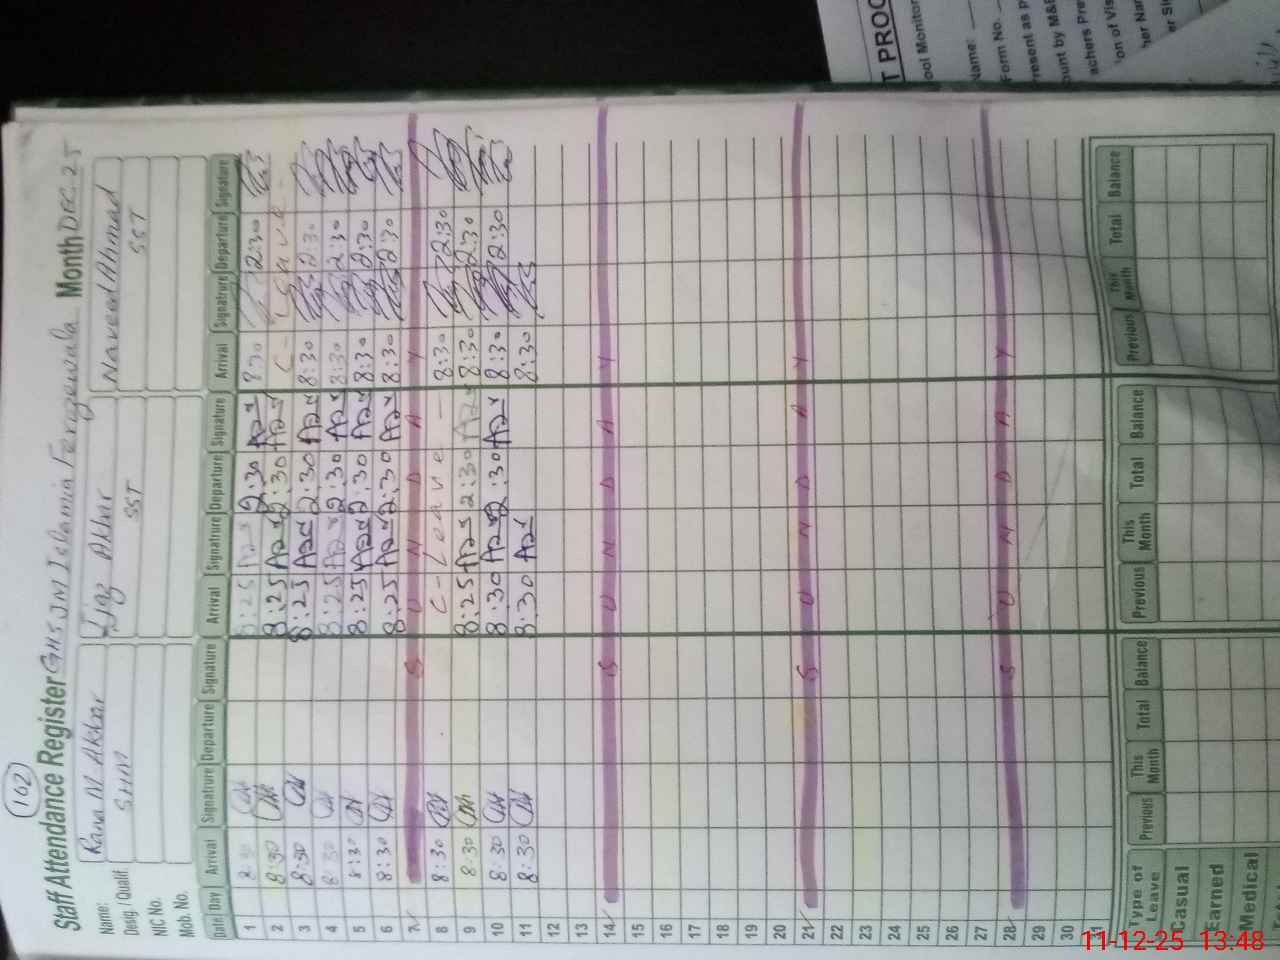 102
Staff Attendance Register GHS JM Islamia Ferozewala Month DEC. 25
Name: Rana N Akhtar Ijaz Akhtar Naveed Ahmad
Desig. / Qualif. SHM SST SST
NIC No.
Mob. No.
Date Day Arrival Signatrure Departure Signature Arrival Signatrure Departure Signature Arrival Signatrure Departure Signature
1 8:30 8:25 2:30 8:30 2:30
2 8:30 8:25 2:30 C- Leave -
3 8:30 8:25 2:30 8:30 2:30
4 8:30 8:25 2:30 8:30 2:30
5 8:30 8:25 2:30 8:30 2:30
6 8:30 8:25 2:30 8:30 2:30
7 S U N D A Y
8 8:30 C- Leave - 8:30 2:30
9 8:30 8:25 2:30 8:30 2:30
10 8:30 8:30 2:30 8:30 2:30
11 8:30 8:30 8:30
12
13
14 S U N D A Y
15
16
17
18
19
20
21 S U N D A Y
22
23
24
25
26
27
28 S U N D A Y
29
30
31
Type of Leave Previous This Month Total Balance Previous This Month Total Balance Previous This Month Total Balance
Casual
Earned
Medical
T PROC
ool Monitor
Name:
Form No.
resent as p
ount by M&E
achers Pre
on of Vis
her Nar
er Si
11-12-25 13:48